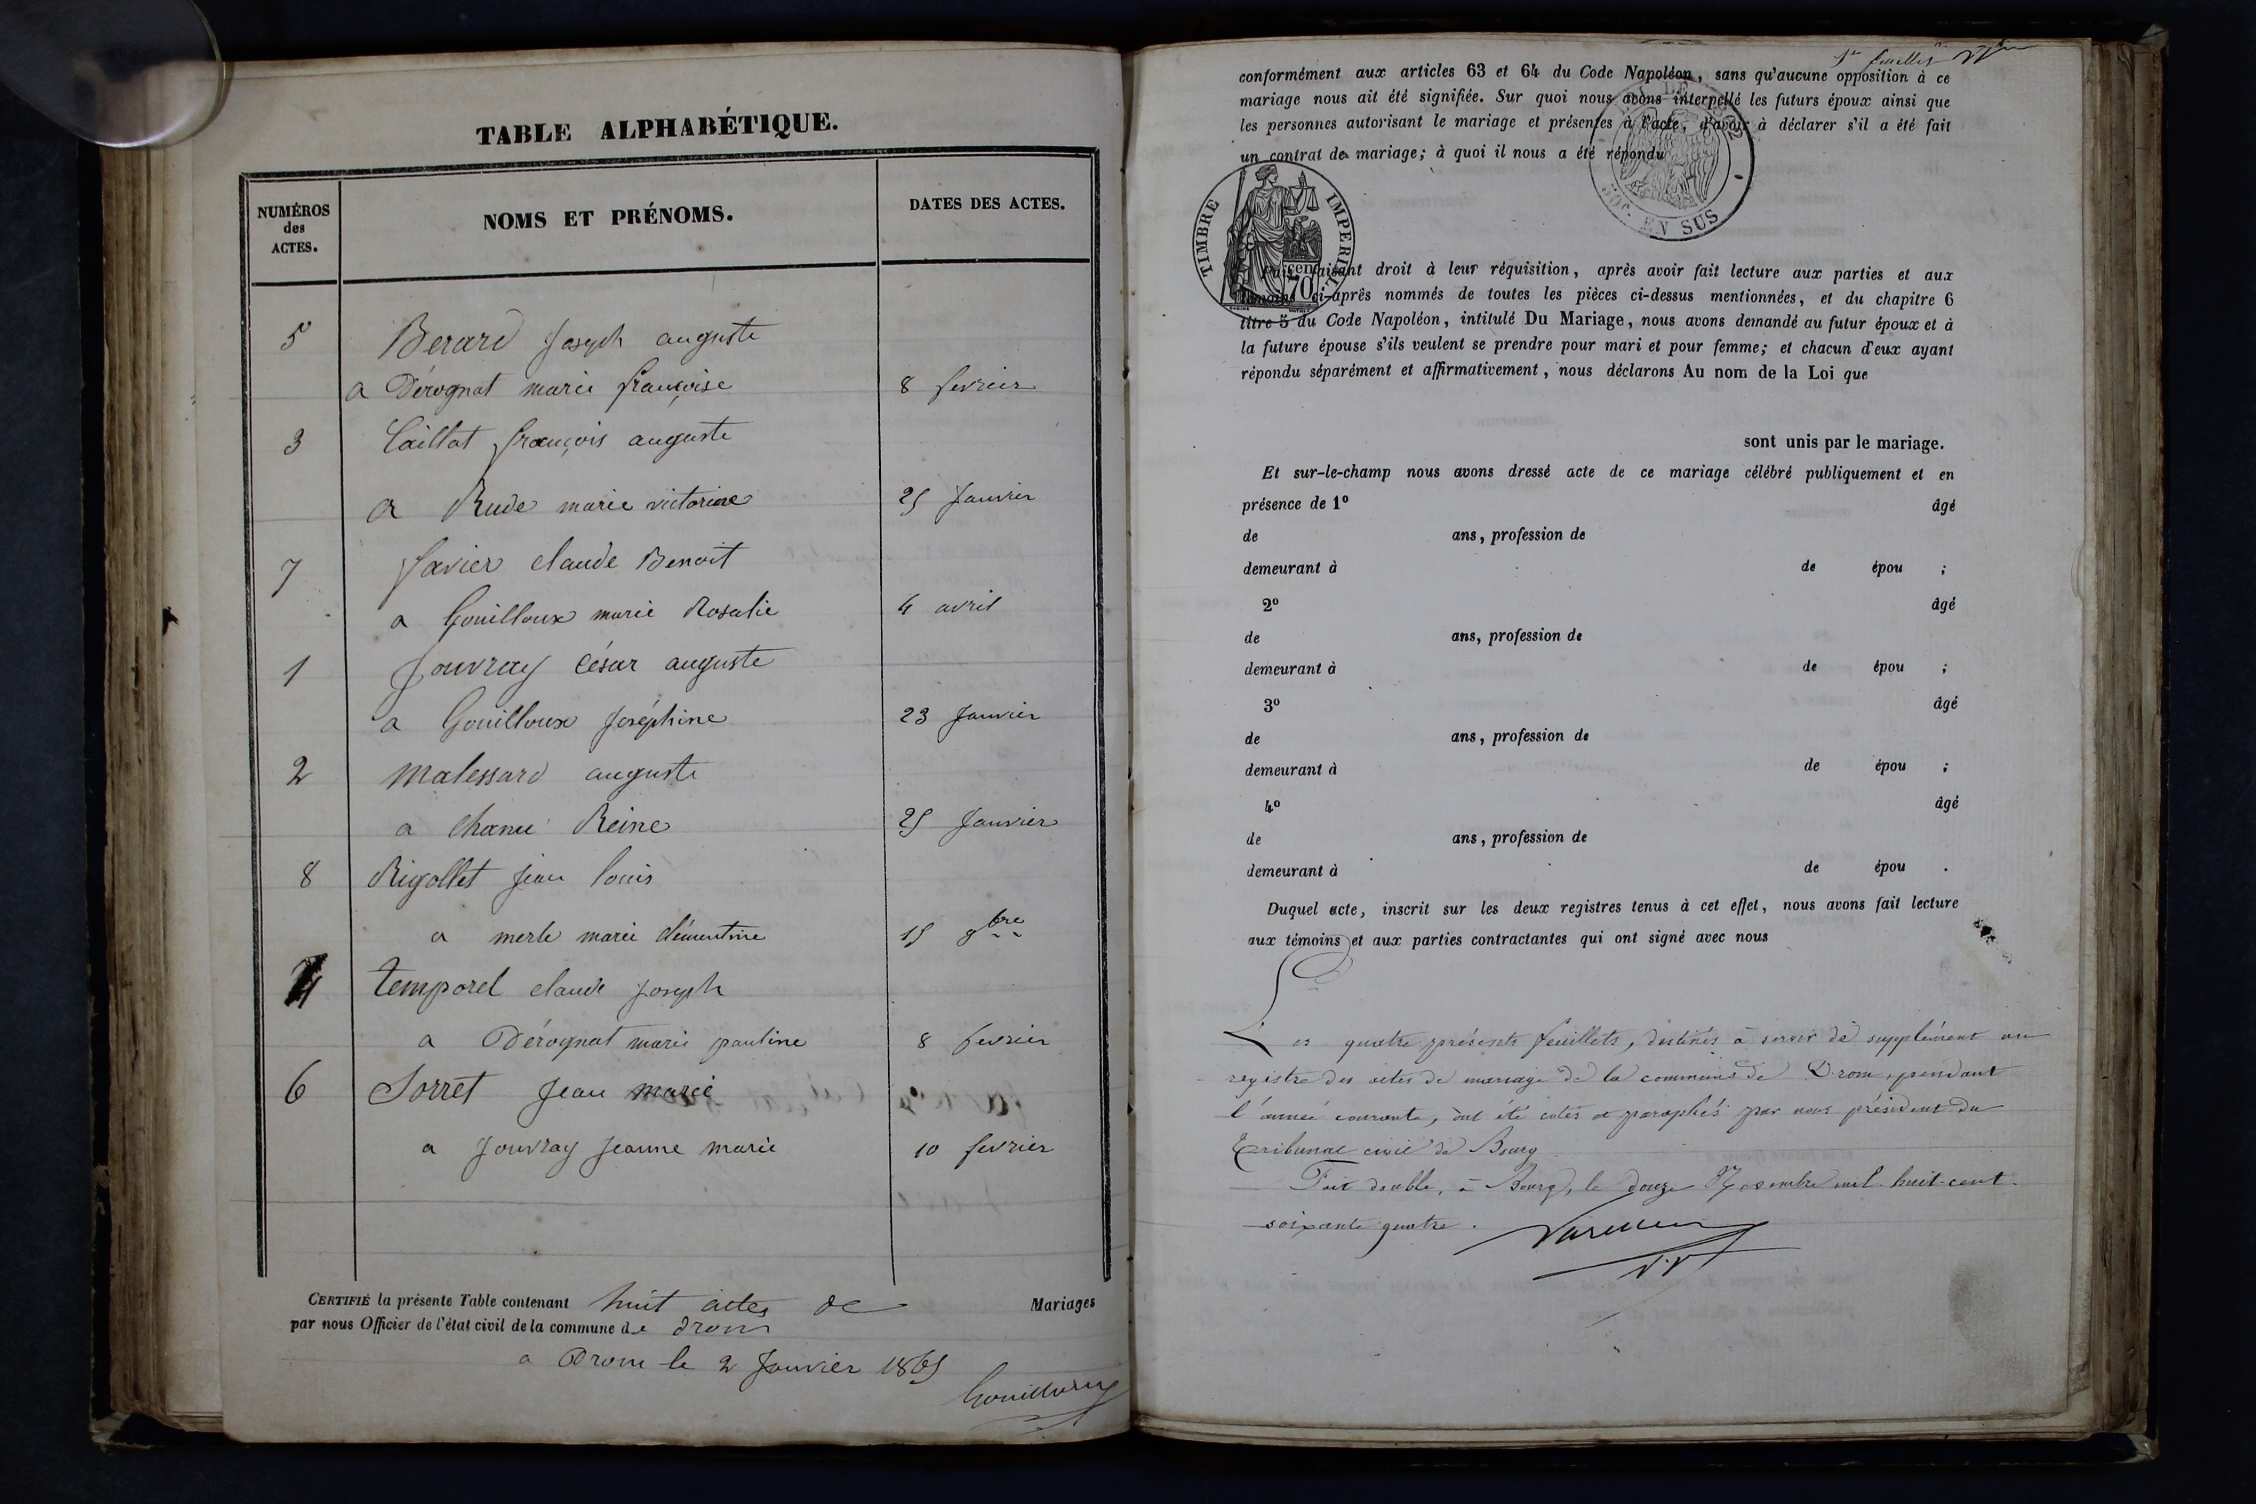 TABLE ALPHABÉTIQUE.
NUMÉROS
des
ACTES.
NOMS ET PRÉNOMS.
DATES DES ACTES.
5 Berard Joseph auguste
a Dérognat marie françoise 8 fevrier
3 Caillat françois auguste
a Rude marie victorine 25 Janvier
7 favier claude Benoit
a Gouilloux marie Rosalie 4 avril
1 Jouvray César auguste
a Gouilloux Joséphine 23 Janvier
2 Malessard auguste
a chanu Reine 25 Janvier
8 Rigollet jean louis
a merle marie clémentine 15 9bre
4 temporel claude joseph
a Dérognat marie pauline 8 fevrier
6 Sorret Jean marie
a Jouvray Jeanne marie 10 fevrier
CERTIFIÉ la présente Table contenant huit actes de Mariages
par nous Officier de l'état civil de la commune de drom
a Drom le 2 Janvier 1865
Gouilloux
1er feuillet
conformément aux articles 63 et 64 du Code Napoléon, sans qu'aucune opposition à ce
mariage nous ait été signifiée. Sur quoi nous avons interpellé les futurs époux ainsi que
les personnes autorisant le mariage et présentes à l'acte, d'avoir à déclarer s'il a été fait
un contrat de mariage; à quoi il nous a été répondu
50c. EN SUS
TIMBRE IMPERIAL
70 cen
Puis, faisant droit à leur réquisition, après avoir fait lecture aux parties et aux
témoins ci-après nommés de toutes les pièces ci-dessus mentionnées, et du chapitre 6
titre 5 du Code Napoléon, intitulé Du Mariage, nous avons demandé au futur époux et à
la future épouse s'ils veulent se prendre pour mari et pour femme; et chacun d'eux ayant
répondu séparément et affirmativement, nous déclarons Au nom de la Loi que
sont unis par le mariage.
Et sur-le-champ nous avons dressé acte de ce mariage célébré publiquement et en
présence de 1º âgé
de ans, profession de
demeurant à de épou ;
2º âgé
de ans, profession de
demeurant à de épou ;
3º âgé
de ans, profession de
demeurant à de épou ;
4º âgé
de ans, profession de
demeurant à de épou .
Duquel acte, inscrit sur les deux registres tenus à cet effet, nous avons fait lecture
aux témoins et aux parties contractantes qui ont signé avec nous
Les quatre présents feuillets, destinés à servir de supplément au
registre des actes de mariage de la commune de Drom, pendant
l'année courante, ont été cotés et paraphés par nous président du
Tribunal civil de Bourg
Fait double, à Bourg, le douze Novembre mil-huit-cent-
soixante quatre.